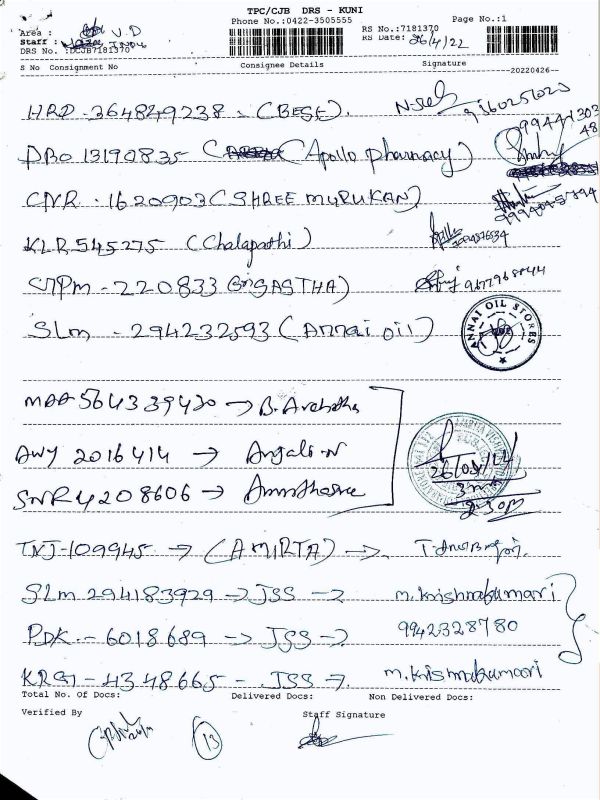 TPC/CJB DRS - KUNI
Phone No.:0422-3505555
Page No.:1
Area : V.D
Staff :
DRS No. :DCJB7181370
RS No.:7181370
RS Date: 26/4/22
S No Consignment No Consignee Details Signature
20220426
HRD - 364849238 - (BEST).
9944 1303
48
PBO 13190835 (Apollo pharmacy)
CNR - 1620903 (SHREE MURUKAN)
KLR 545275 (Chalapathi)
- 220833 (SASTHA) 9677968844
SLM - 294232593 (Annai oil)
ANNAI OIL STORES
MAA 564339420 → B.
AWY 2016414 → Anjali N
SNR 4208606 →
26/04/22
2.30pm
TNJ-109945 → (AMIRTA) →
SLM 294183929 → JSS → M.Krishnakumari
PDK - 6018689 → JSS → 9942328780
- 4348665 - JSS → M.Krishnakumari
Total No. Of Docs: Delivered Docs: Non Delivered Docs:
Verified By Staff Signature
13